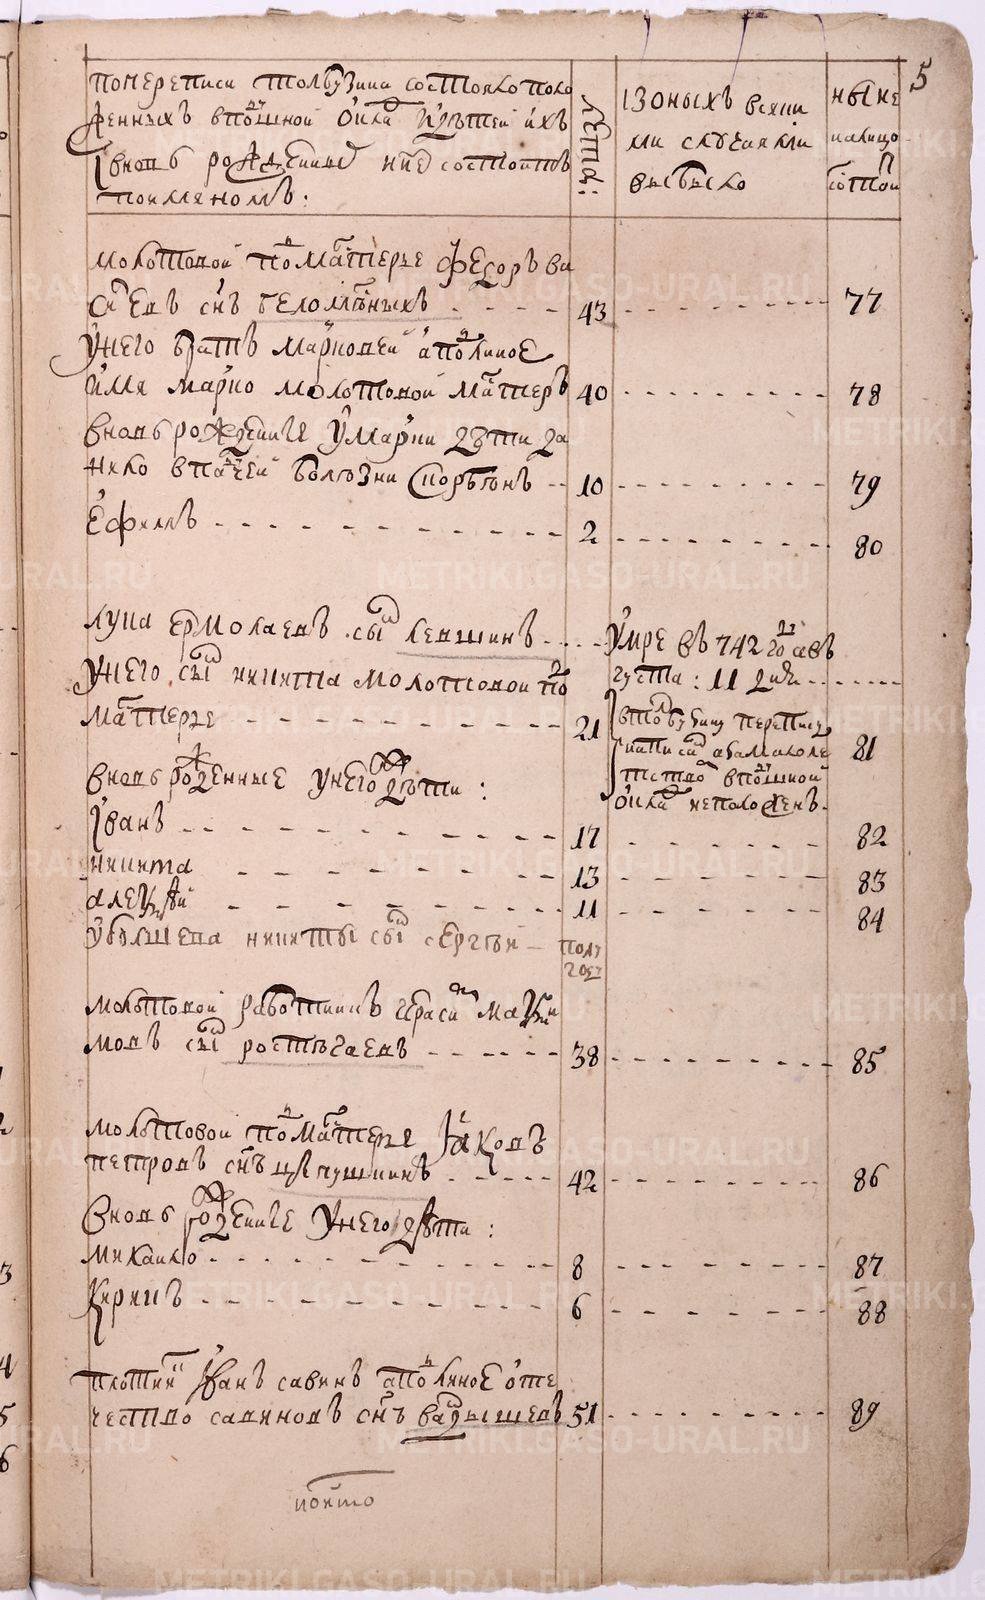 5
попереписи толбузина состояло поло
женных впдшной оклад идетей ихъ
ивновь рожденные ннѣ состоитъ
поимяномъ:
лета:
ізоныхъ всяки
ми случаями
выбыло
ныне
налицо
состои
молотовой помастерье федоръ ва
силевъ снъ беломыныхъ 43 77
унего братъ марковей аподлиное
имя марко молотовой мастеръ 40 78
вновь рожденные умарки дети да
нило впадчей болезни скорбенъ 10 79
ефимъ 2 80
лупа ермолаевъ сынъ левшинъ умре въ 742 году авъ
густа: 11 дня
унего сынъ никита молотовой по
мастерье 21 81
втолбузину перепись
написанъ абамалоле
тствомъ впдшной
окладъ неположенъ
вновь рожденные унего дети:
иванъ 17 82
никита 13 83
алексей 11 84
убольшева никиты сынъ сергей полу
году
молотовой работникъ герасимъ макси
мовъ сынъ ростегаевъ 38 85
молотовой помастерье іаковъ
петровъ снъ цепушкинъ 42 86
вновь рожденные унего дети:
михайло 8 87
кирикъ 6 88
плотникъ иванъ савинъ аподлиное оте
чество савиновъ снъ вадышевъ 51 89
METRIKI.GASO-URAL.RU